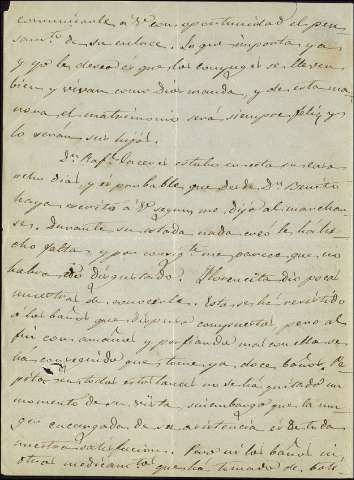 comunicarle á Vd con oportunidad el pen-
samto de su enlace. Lo que importa ya
y yo le deseo es que los conyuges se lleven
bien y vivan como Dios manda, y de esta ma-
nera el matrimonio será siempre feliz y
lo seran sus hijos.
Dn Rafl Cacerez estubo en esta su casa
ocho dias, y es probable que desde Dn Benito
haya escrito á Vd segun me dijo al marchar-
se. Durante su estada nada creo le há he-
cho falta, y por consigte me parece que no
habrá ido disgustado? Florencita dio pocas
muestras de conocerle. Esta se há resistido
á los baños que dispuso compuestos pero al
fin con amaño y porfiando mas con ella se
ha conseguido que tome ya doce baños. Pe-
pita en todas estas tareas no se há quitado un
momento de su vista sin embargo que la mu-
ger encargada de su asistencia es de toda
nuestra satisfaccion. Pero ni los baños ni
otros medicamtos que há tomado de boti-